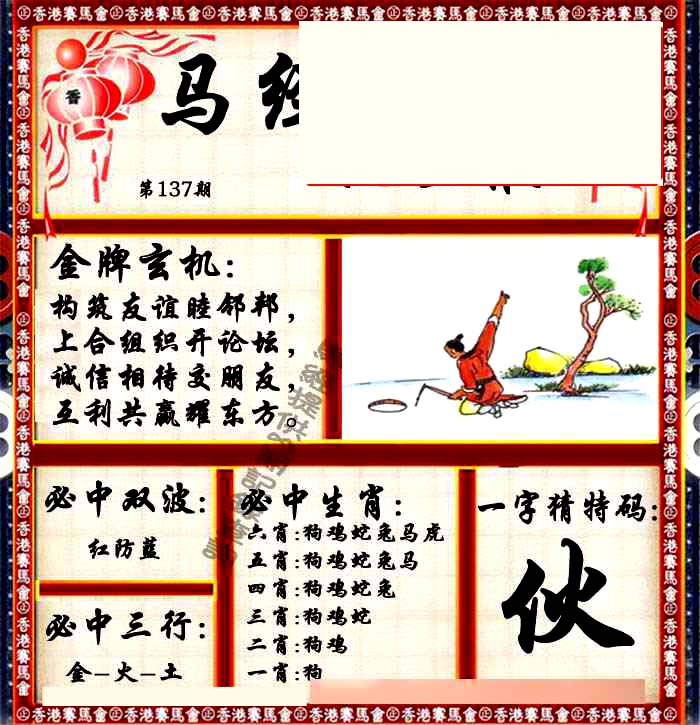 ㊣香港賽馬會㊣香港賽馬會㊣香港賽馬會㊣香港賽馬會㊣香港賽馬會㊣香港賽馬會㊣香港賽馬會㊣
香
马经
第137期
金牌玄机：
构筑友谊睦邻邦，
上合组织开论坛，
诚信相待交朋友，
互利共赢耀东方。
必中双波：
红防蓝
必中三行：
金-火-土
必中生肖：
六肖:狗鸡蛇兔马虎
五肖:狗鸡蛇兔马
四肖:狗鸡蛇兔
三肖:狗鸡蛇
二肖:狗鸡
一肖:狗
一字猜特码：
伙
㊣香港賽馬會㊣香港賽馬會㊣香港賽馬會㊣香港賽馬會㊣香港賽馬會㊣香港賽馬會㊣香港賽馬會㊣